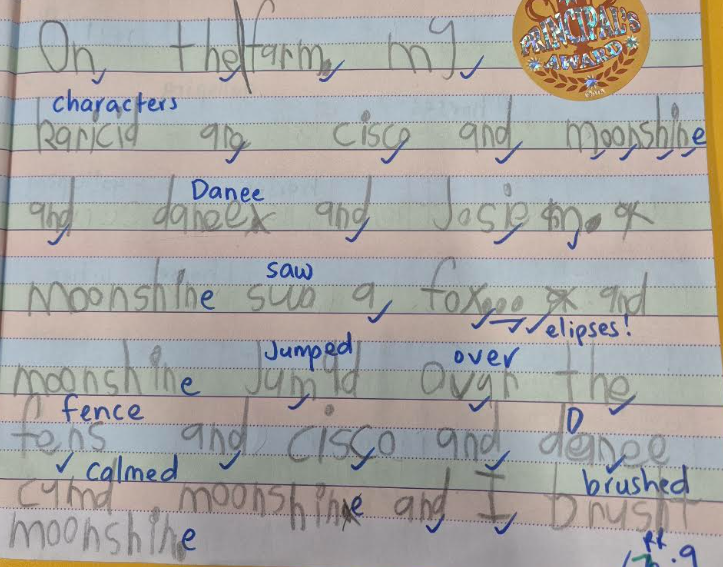 On the farm, my
PRINCIPAL'S
AWARD
characters
karicid arg cisco and moonshine
Danee
and daneex and Josie my.
saw
moonshine swo a fox... and
elipses!
Jumped over
moonshine Jumld ovyr the
fence D
fens and cisco and danee
calmed brushed
cymd moonshine and I brusht
moonshine